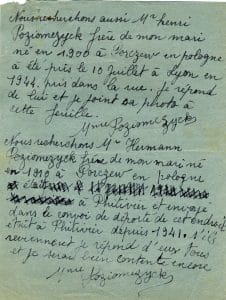 Nous recherchons aussi Mr henri
Poziomezyck frère de mon mari
né en 1900 à Porczew en pologne
a été pris le 10 Juillet à Lyon en
1944. pris dans la rue. je répond
de lui et je joint sa photo à
cette feuille.
Mme Poziomezyck
Nous recherchons Mr Hermann
Poziomezyck frère de mon mari né
en 1910 à Porczew en pologne
était
à Phitivier et envoyé
dans le convoi de déporté de cet endroit
était à Phitivier depuis 1941. s'ils
reviennent je répond d'eux tous
et je serai bien contente encore
Mme
Poziomezyck